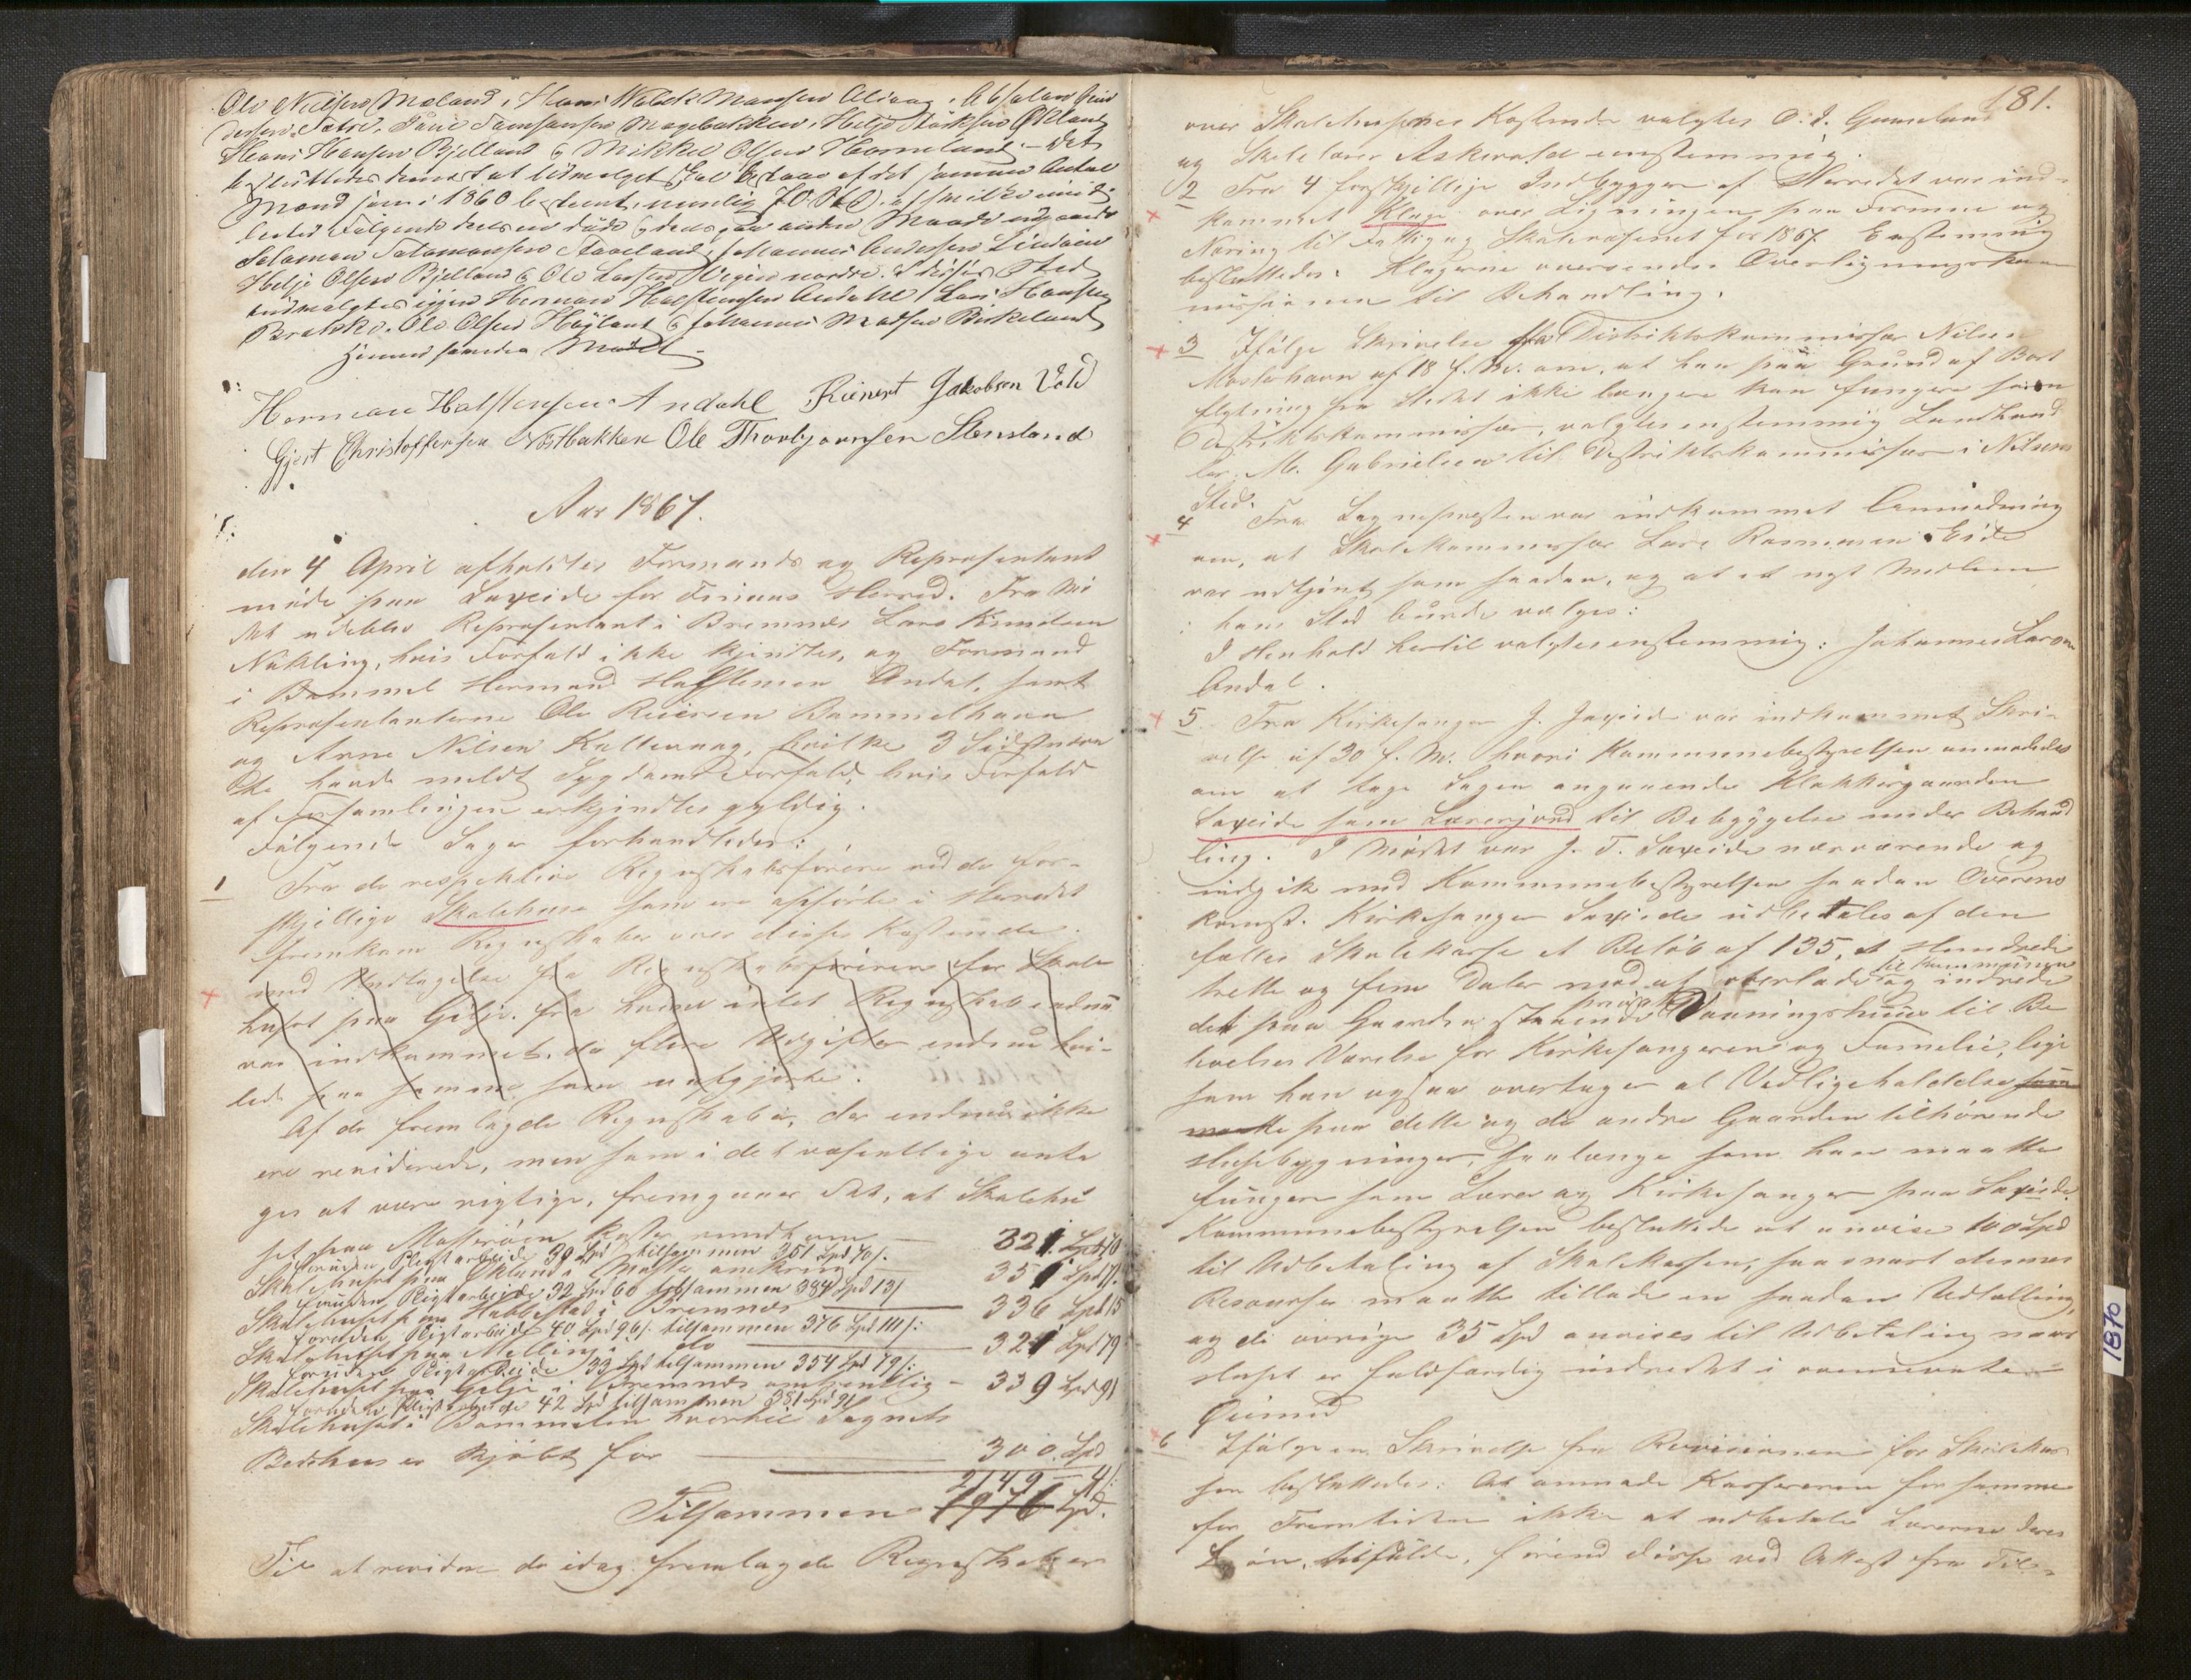 Ole Nielsen Mæland, Hans Walck Mansen Aliaag, Absalon
Jøns Tarne Tønnesen Mogebakken, Helje Størksen Økland
Hans Hansen Bjelland & Mikkel Olsen Horneland – Det
besluttedes dernest at Udvalget skal bestaae af det samme Antal
Mænd som i 1860 bestemt, nemlig 70
Følgende deels ere døde & deels paa anden Maade
Salomon Salomonsen Staveland, Johannes Andersen Lindøen
Helje Olsen Bjelland & Ole Larsen Vigen nordre. I disses Sted
udvalgtes igjen Herman Halstensen Andahl, Lars Hansen
Bratske, Ole Olsen Høiland & Johannes Madsen Birkeland
Herman Halstensen Andahl Reinert Jakobsen Vold
Gjert Christoffersen Nøstbakken Ole Thorbjørnsen Stensland
Aar 1867.
den 4 April afholdtes Formands og Repræsentant
møde paa Laxeide for Finaas Herred. Fra Mø
det udeblev Repræsentant i Bremnæs Lars Knudsen
Nækling, hvis Forfald ikke kjendtes, og Formand
i Bømmel Herman Halstensen Andal, samt
Repræsentanterne Ole Reiersen Bømmelhavn
og Arne Nilsen Kallevaag, hvilke 3 Sidstnævn
te havde meldt Sygdoms Forfald, hvis Forfald
af Forsamlingen erkjendtes gyldig.
Følgende Sager forhandledes:
1 Fra de respektive Regnskabsførere ved de for-
skjellige Skolehuse som ere opførte i Herredet
fremkom Regnskaber over disses Kostende
med Undtagelse fra Regnskabsføreren for Skole
huset paa Gilje, fra hvem intet Regnskab endnu
var indkommet, da flere Udgifter endnu hvi-
lede paa samme som uafgjorte.
Af de fremlagde Regnskaber, der endnu ikke
ere reviderede, men som i det væsentlige anta
ges at være rigtige, fremgaaer det, at Skolehu
set paa Mosterøen koster rundt om – 321 Spd 70
foruden Pligtarbeide 30 Spd tilsammen 351 Spd 70/:
Skolehuset paa Økland i Moster omkring – 351 Spd 71
foruden Pligtarbeide 32 Spd 60 tilsammen 384 Spd 13/
Skolehuset paa Hallestad i Bremnæs – 336 Spd 15
foruden Pligtarbeide 40 Spd 96/: tilsammen 376 Spd 111/:
Skolehuset paa Melling i do – 321 Spd 79
foruden Pligtarbeide 33 Spd tilsammen 354 Spd 79/:
Skolehuset paa Gilje i Bremnæs omtrentlig – 339 Spd 91
foruden Pligtarbeide 42 Spd tilsammen 381 Spd 91
Skolehuset i Bømmelen hvortil Sognets
Bedehus er kjøbt for – 300 Spd
2149 – 4/:
Tilsammen 1976 Spd.
Til at revidere de idag fremlagde Regnskaber
181.
over Skolehusenes Kostende valgtes O. J. Gunneland
og Skolelærer Askevold enstemmig.
2 Fra 4 forskjellige Indbyggere af Herredet var ind-
kommet Klage over Ligningen paa Formue og
Næring til Fattig og Skolevæsenet for 1867. Enstemmig
besluttedes: Klagerne oversendes Overligningskom
missionen til Behandling.
3 Ifølge Skrivelse fra Distriktskommissær Nilsen
Mosterhavn af 18 f. M. om, at han paa Grund af Bort
flytning fra Stedet ikke længere kan fungere som
Distriktskommissær, valgtes enstemmig Landhand
ler M. Gabrielsen til Distriktskommissær i Nilsens
Sted.
4 Fra Sognepræsten var indkommet Anmodning
om, at Skolekommissær Lars Rasmussen Eide
var udtjent som saadan, og at et nyt Medlem
i hans Sted burde vælges:
I Henhold hertil valgtes enstemmig: Johannes Larsen
Andal.
5 Fra Kirkesanger J. Laxeide var indkommet Skri-
velse af 30 f. M. hvori Kommunebestyrelsen anmodedes
om at tage Sagen angaaende Klokkergaarden
Laxeide som Lærerjord til Bebyggelse under Behand
ling. I Mødet var J. T. Laxeide nærværende og
indgik med Kommunebestyrelsen saadan Overens
komst. Kirkesanger Laxeide udbetales af den
fælles Skolekasse et Beløb af 135, et Hundrede
trette og fem Daler mod at overlade til Kommunen og indrede
det paa Gaarden staaende private Vaaningshuus til Be
boelses Værelse for Kirkesangeren og Familie, lige
som han ogsaa overtager al Vedligeholdelse som
maatte paa dette og de andre Gaarden tilhørende
Husebygninger, saalænge som han maatte
fungere som Lærer og Kirkesanger paa Laxeide.
Kommunebestyrelsen besluttede at anvise 100 Spd
til Udbetaling af Skolekassen, saasnart dennes
Resourser maatte tillade en saadan Udtælling,
og de øvrige 35 Spd anvises til Udbetaling naar
Huset er fuldfærdig indredet i ovennævnte
Øiemed
6 Ifølge en Skrivelse fra Revisionen for Skolekas
sen besluttedes: At anmode Kassereren for samme
for Fremtiden ikke at udbetale Lærerne deres
Løn, tilfulde, førend disse ved Attest fra Til-
1870